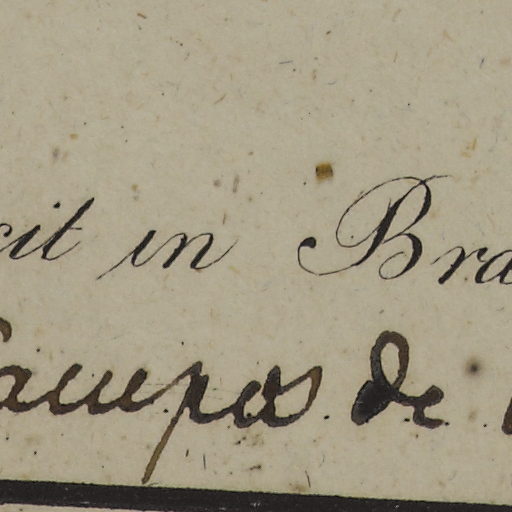 cit in Bra
Campos de